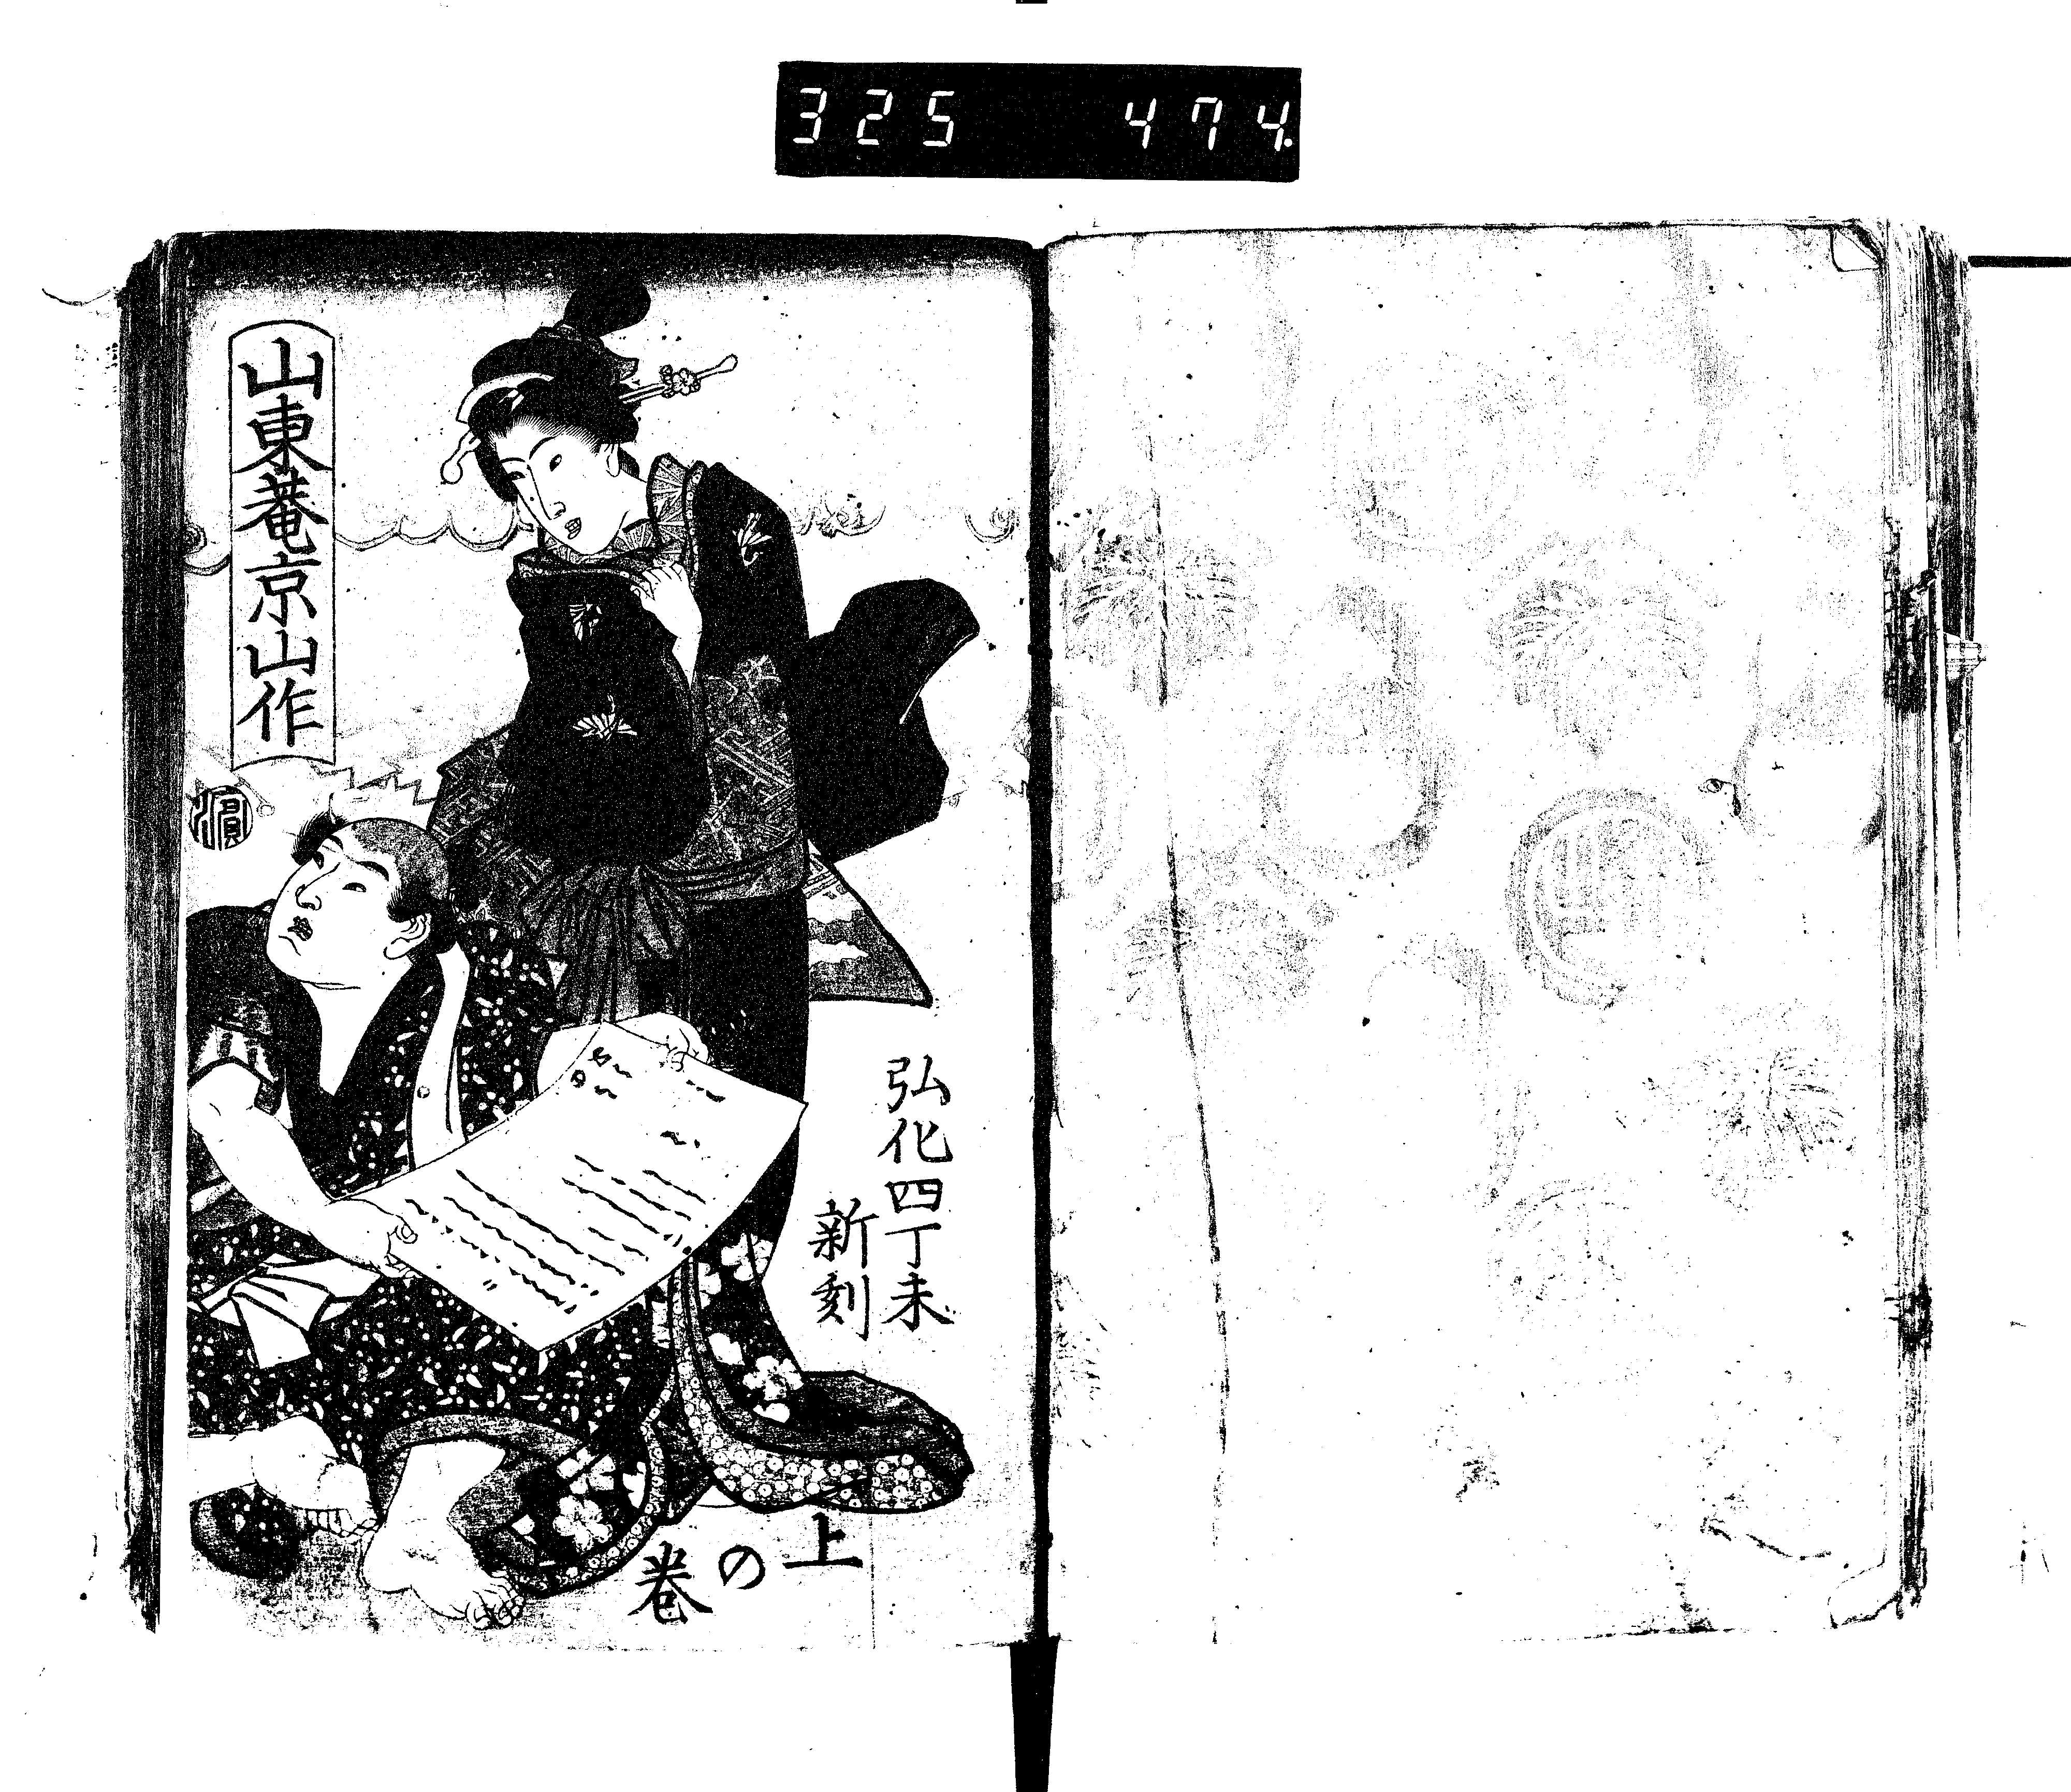 325 474
弘化四丁未
新刻
上の巻
山東菴京山作
濵